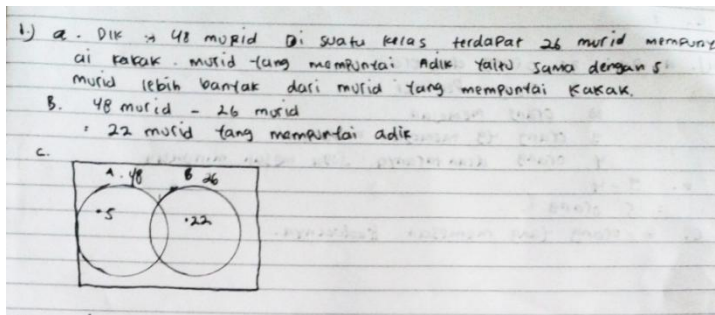 1.) a. Dik : 48 murid Di suatu kelas terdapat 26 murid mempuny
ai kakak. murid yang mempunyai Adik yaitu sama dengan 5
murid lebih banyak dari murid yang mempunyai kakak.
B. 48 murid - 26 murid
= 22 murid yang mempunyai adik
C.
A. 48 B 26
.5 .22